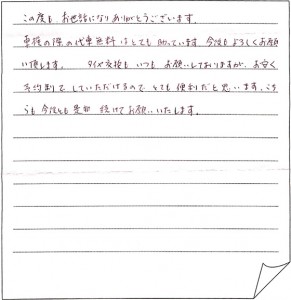 この度も、お世話になりありがとうございます。
車検の際の代車無料はとても助っています。今後もよろしくお願
い致します。 タイヤ交換も、いつも、お願いしておりますが、お安く
予約制でしていただけるので とても便利だと思います。こち
らも今後とも是非 続けてお願いいたします。